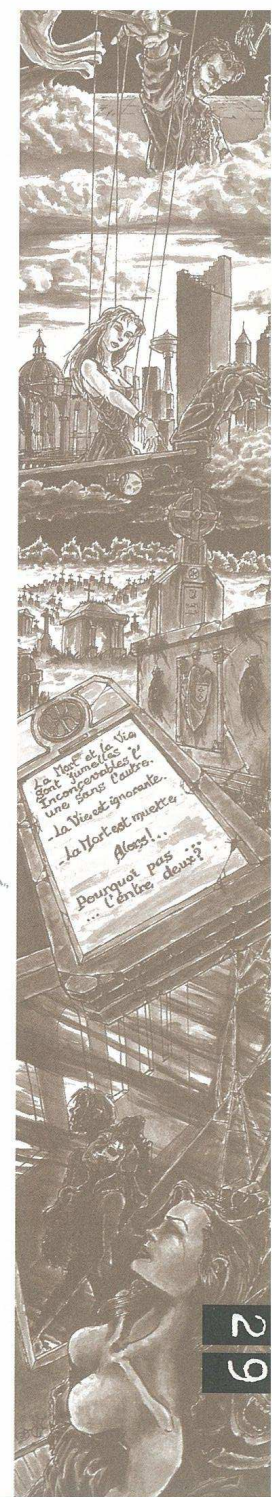 La Mort et la Vie
Sont jumelles
Inconcevables l'
une sans l'autre.
La Vie est ignorante.
La Mort est muette
Alors!..
Pourquoi pas ...
... l'entre deux?
29